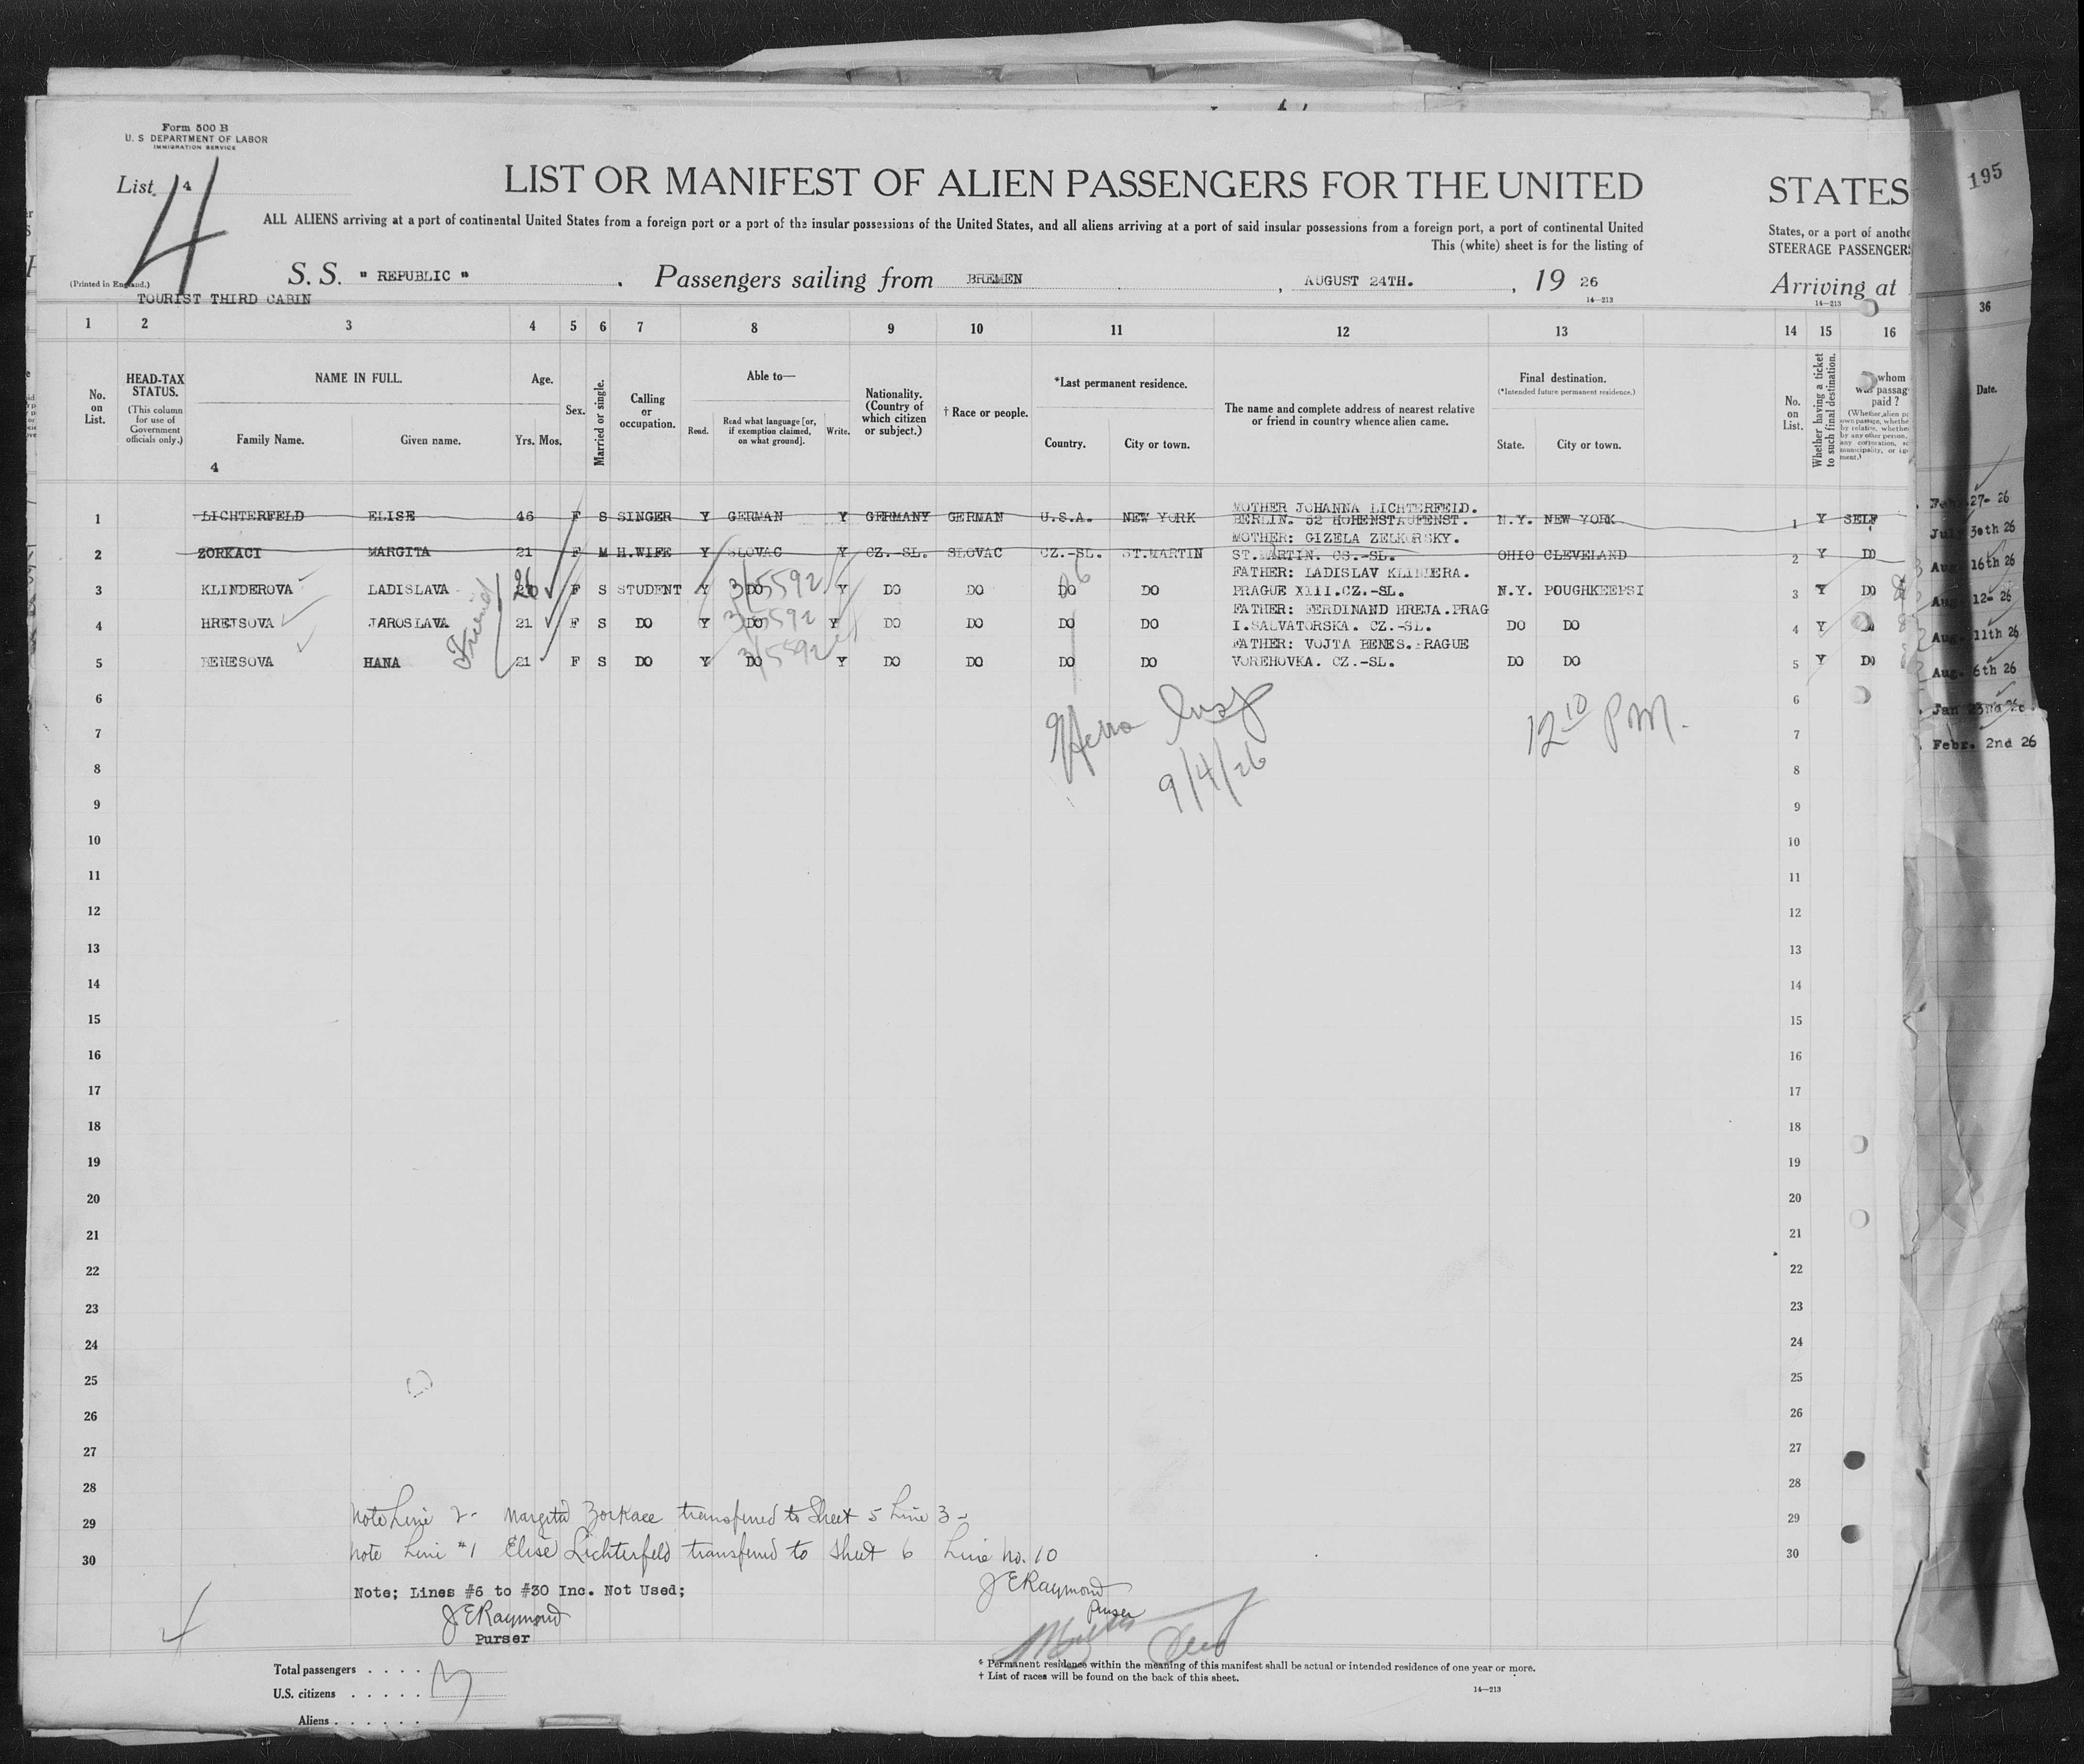 Form 500 B
U. S DEPARTMENT OF LABOR
IMMIGRATION SERVICE
List 4
4
LIST OR MANIFEST OF ALIEN PASSENGERS FOR THE UNITED STATES
195
ALL ALIENS arriving at a port of continental United States from a foreign port or a port of the insular possessions of the United States, and all aliens arriving at a port of said insular possessions from a foreign port, a port of continental United
States, or a port of anothe
This (white) sheet is for the listing of
STEERAGE PASSENGER
(Printed in England.)
S. S. " REPUBLIC " . Passengers sailing from BREMEN , AUGUST 24TH. , 19 26
Arriving at
14—213
14—213
TOURIST THIRD CABIN
1 2 3 4 5 6 7 8 9 10 11 12 13 14 15 16
36
No. on List.
HEAD-TAX STATUS.
(This column for use of Government officials only.)
NAME IN FULL.
Family Name. Given name.
4
Age.
Yrs. Mos.
Sex.
Married or single.
Calling or occupation.
Able to—
Read. Read what language [or, if exemption claimed, on what ground]. Write.
Nationality. (Country of which citizen or subject.)
† Race or people.
*Last permanent residence.
Country. City or town.
The name and complete address of nearest relative or friend in country whence alien came.
Final destination.
(*Intended future permanent residence.)
State. City or town.
No. on List.
Whether having a ticket to such final destination.
whom
passag
paid ?
Date.
MOTHER JOHANNA LICHTERFELD.
1 LICHTERFELD ELISE 46 F S SINGER Y GERMAN Y GERMANY GERMAN U.S.A. NEW YORK BERLIN. 52 HOHENSTAUFENST. N.Y. NEW YORK 1 Y SELF
MOTHER: GIZELA ZELKORSKY.
2 ZORKACI MARGITA 21 F M H.WIFE Y SLOVAC Y CZ.-SL. SLOVAC CZ.-SL. ST.MARTIN ST.MARTIN. CS.-SL. OHIO CLEVELAND 2 Y DO
FATHER: LADISLAV KLINDERA.
3 KLINDEROVA LADISLAVA 26 F S STUDENT Y DO 3/5592 Y DO DO DO DO PRAGUE XIII.CZ.-SL. N.Y. POUGHKEEPSI 3 Y DO
FATHER: FERDINAND HREJA.PRAG
4 HREJSOVA JAROSLAVA 21 F S DO Y DO 3/5592 Y DO DO DO DO I.SALVATORSKA. CZ.-SL. DO DO 4 Y
FATHER: VOJTA BENES. PRAGUE
5 BENESOVA HANA 21 F S DO Y DO 3/5592 Y DO DO DO DO VOREHOVKA. CZ.-SL. DO DO 5 Y DO
Friend
Feb. 27- 26
July 30th 26
Aug. 16th 26
Aug. 12- 26
Aug. 11th 26
Aug. 6th 26
Jan 23nd 26
Febr. 2nd 26
9/4/26
12 10 P.M.
6 6
7 7
8 8
9 9
10 10
11 11
12 12
13 13
14 14
15 15
16 16
17 17
18 18
19 19
20 20
21 21
22 22
23 23
24 24
25 25
26 26
27 27
28 28
29 29
30 30
Note Line 2- Margita Zorkace transferred to Sheet 5 Line 3-
Note Line #1 Elise Lichterfeld transferred to Sheet 6 Line No. 10
J E Raymond
Purser
Note; Lines #6 to #30 Inc. Not Used;
J E Raymond
Purser
Total passengers . . . .
U.S. citizens . . . . .
Aliens . . . . . .
3
* Permanent residence within the meaning of this manifest shall be actual or intended residence of one year or more.
† List of races will be found on the back of this sheet.
14—213